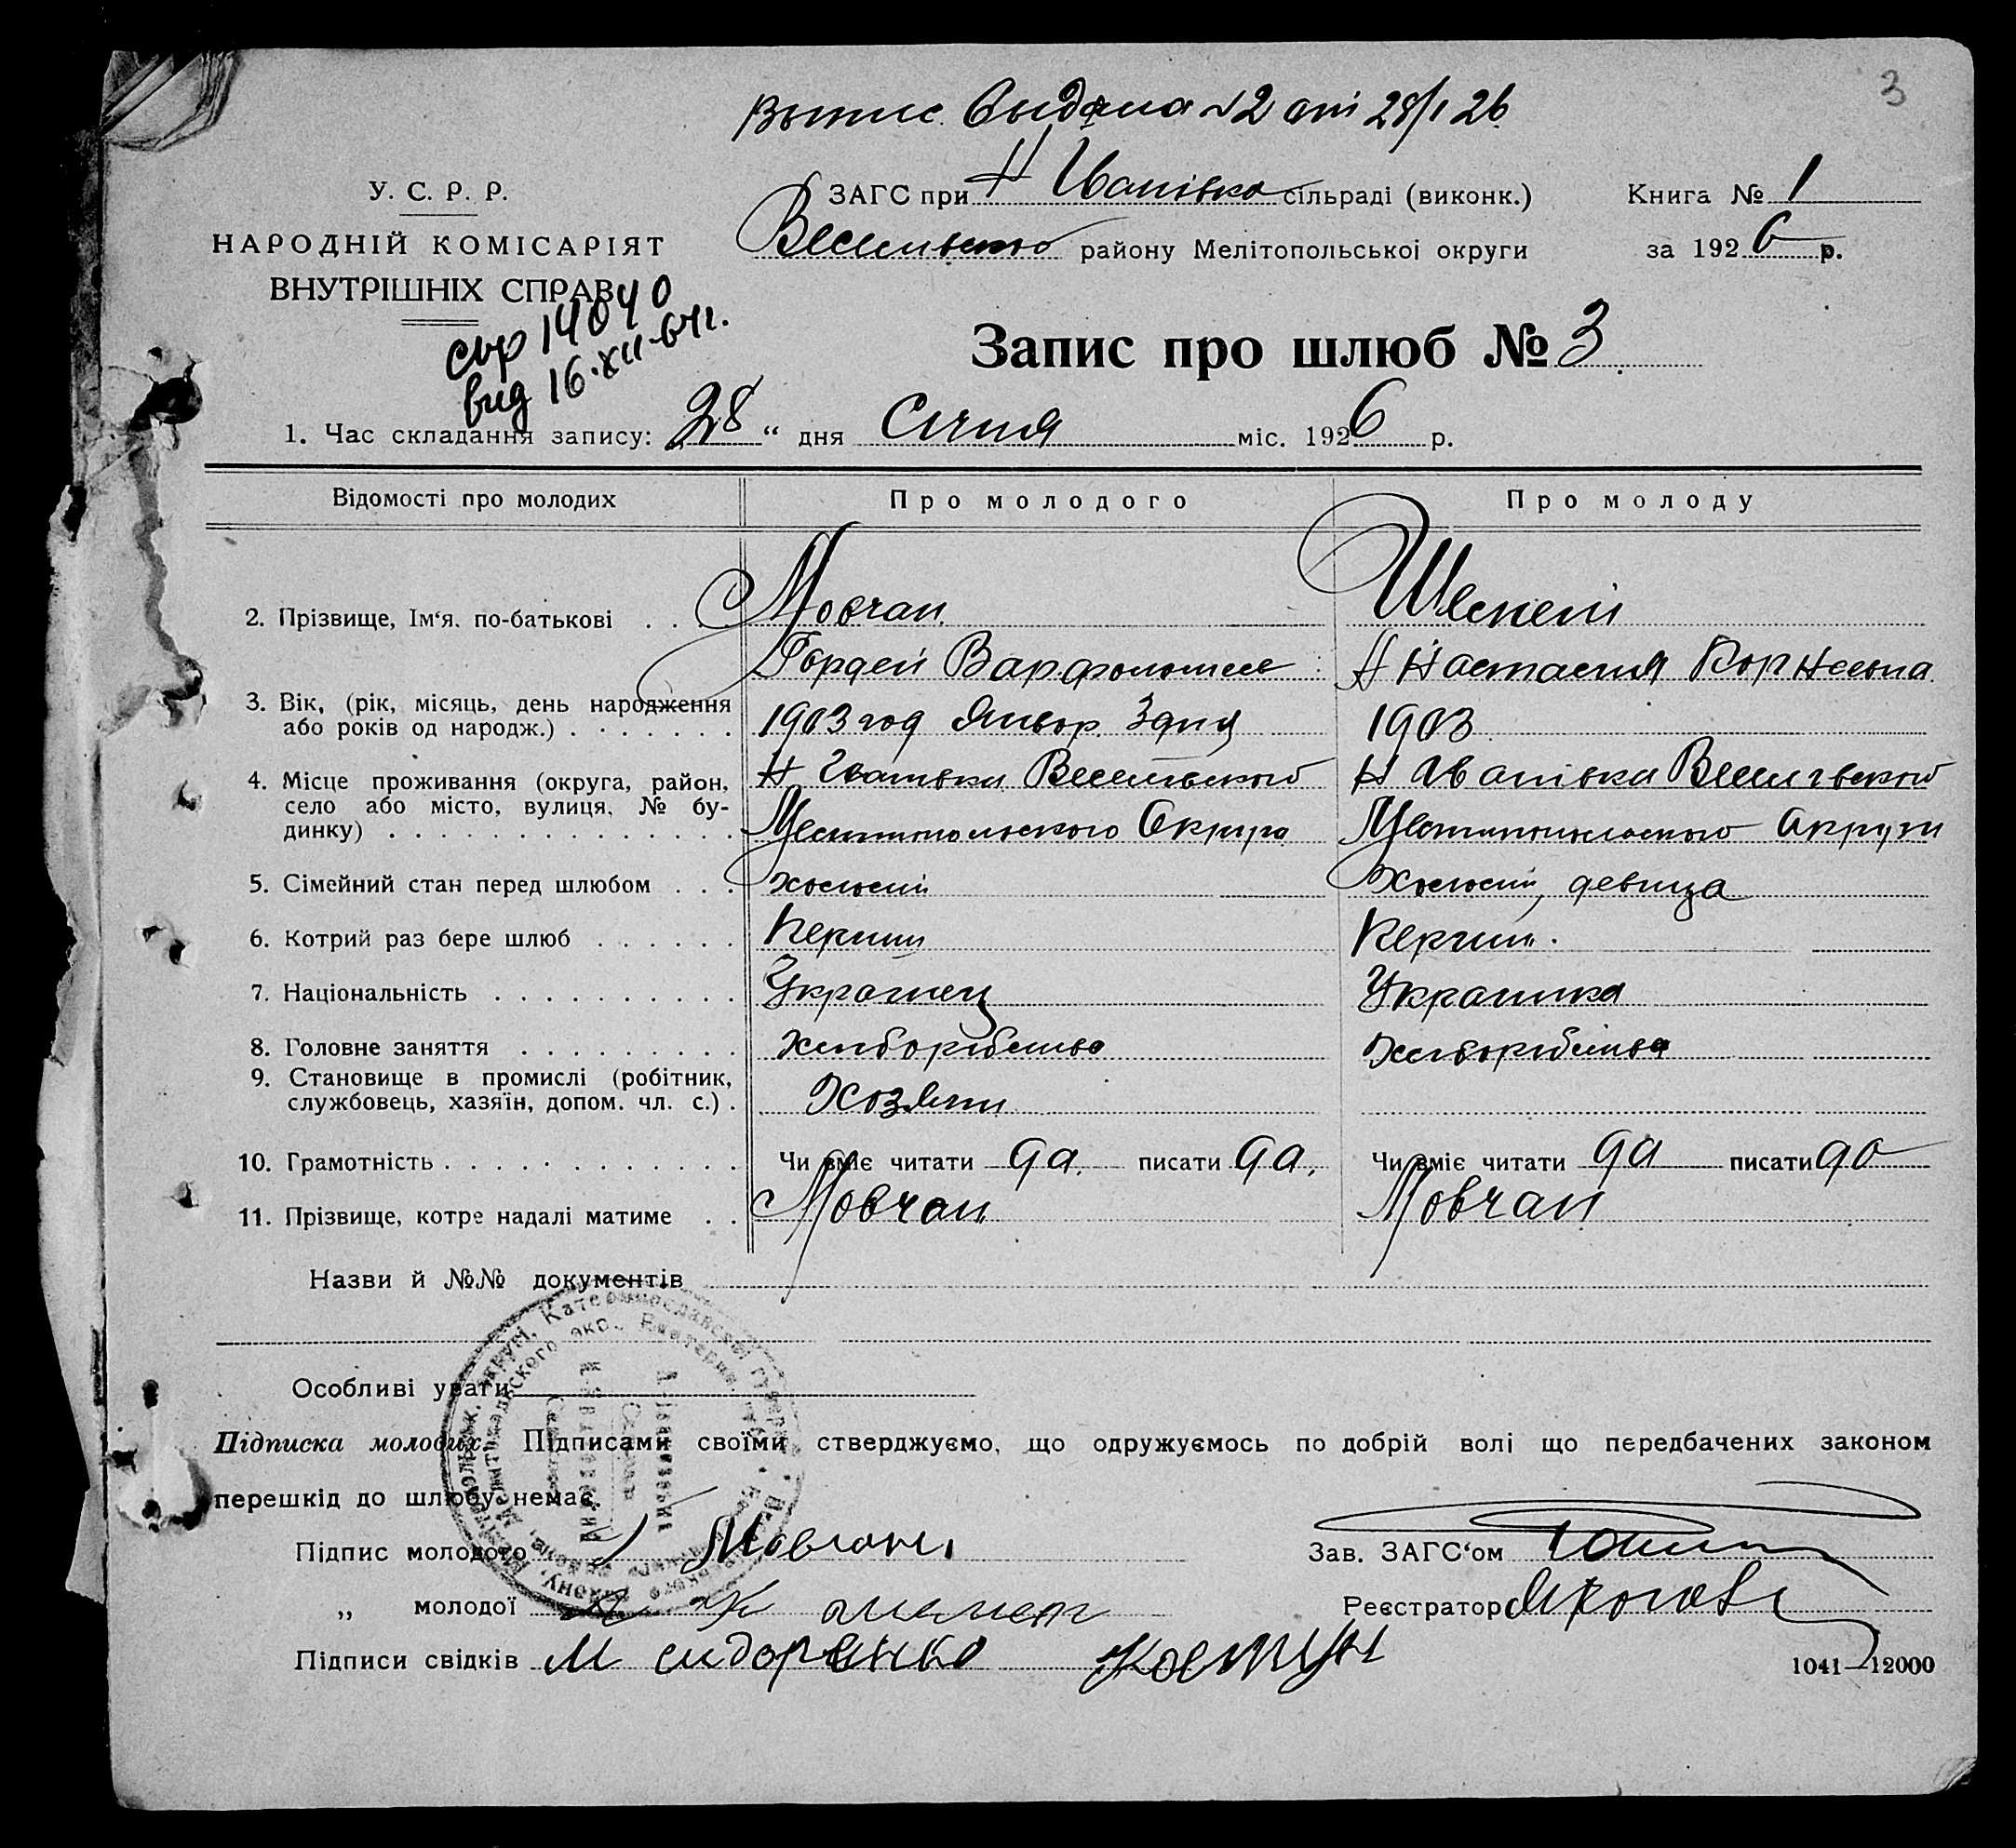 3
Выпис Выдана №2 от 28/1 26
У. С. Р. Р.
НАРОДНІЙ КОМІСАРІЯТ
ВНУТРІШНІХ СПРАВ
ЗАГС при Н Іванівка сільраді (виконк.)
Книга № 1
Весельского району Мелітопольської округи
за 1926 р.
14040
вид 16·XII-64г.
Запис про шлюб № 3
1. Час складання запису: 28 “ дня Січня міс. 1926 р.
Відомості про молодих
Про молодого
Про молоду
2. Прізвище, Ім‘я. по-батькові . . .
Мовчан
Гордей Варфоломеев
Настасия Корнеевна
3. Вік, (рік, місяць, день народження
або років од народж.) . . . . . . .
1903 год Январ. 3 дня
1903
4. Місце проживання (округа, район,
село або місто, вулиця, № бу-
динку) . . . . . . . . . . . . . .
Н Іванівка Весельского
Мелитопольского Округа
Н Іванівка Весельского
Мелитопольского Округи
5. Сімейний стан перед шлюбом . . .
холостий
Холостий, девица
6. Котрий раз бере шлюб . . . . . .
Перший
Перший.
7. Національність . . . . . . . . . .
Украинец
Украинка
8. Головне заняття . . . . . . . . .
хліборобство
Хліборобство
9. Становище в промислі (робітник,
службовець, хазяїн, допом. чл. с.) .
Хозяин
10. Грамотність . . . . . . . . . . . .
Чи вміє читати да. писати да.
Чи вміє читати да писати да
11. Прізвище, котре надалі матиме . .
Мовчан
Мовчан
Назви й №№ документів
Особливі уваги
Підписка молодих. Підписами своїми стверджуємо, що одружуємось по добрій волі що передбачених законом
перешкід до шлюбу немає.
Підпис молодого Мовчан
Зав. ЗАГС‘ом
„ молодої
Реєстратор
Підписи свідків М сидоренко Костун
1041—12000